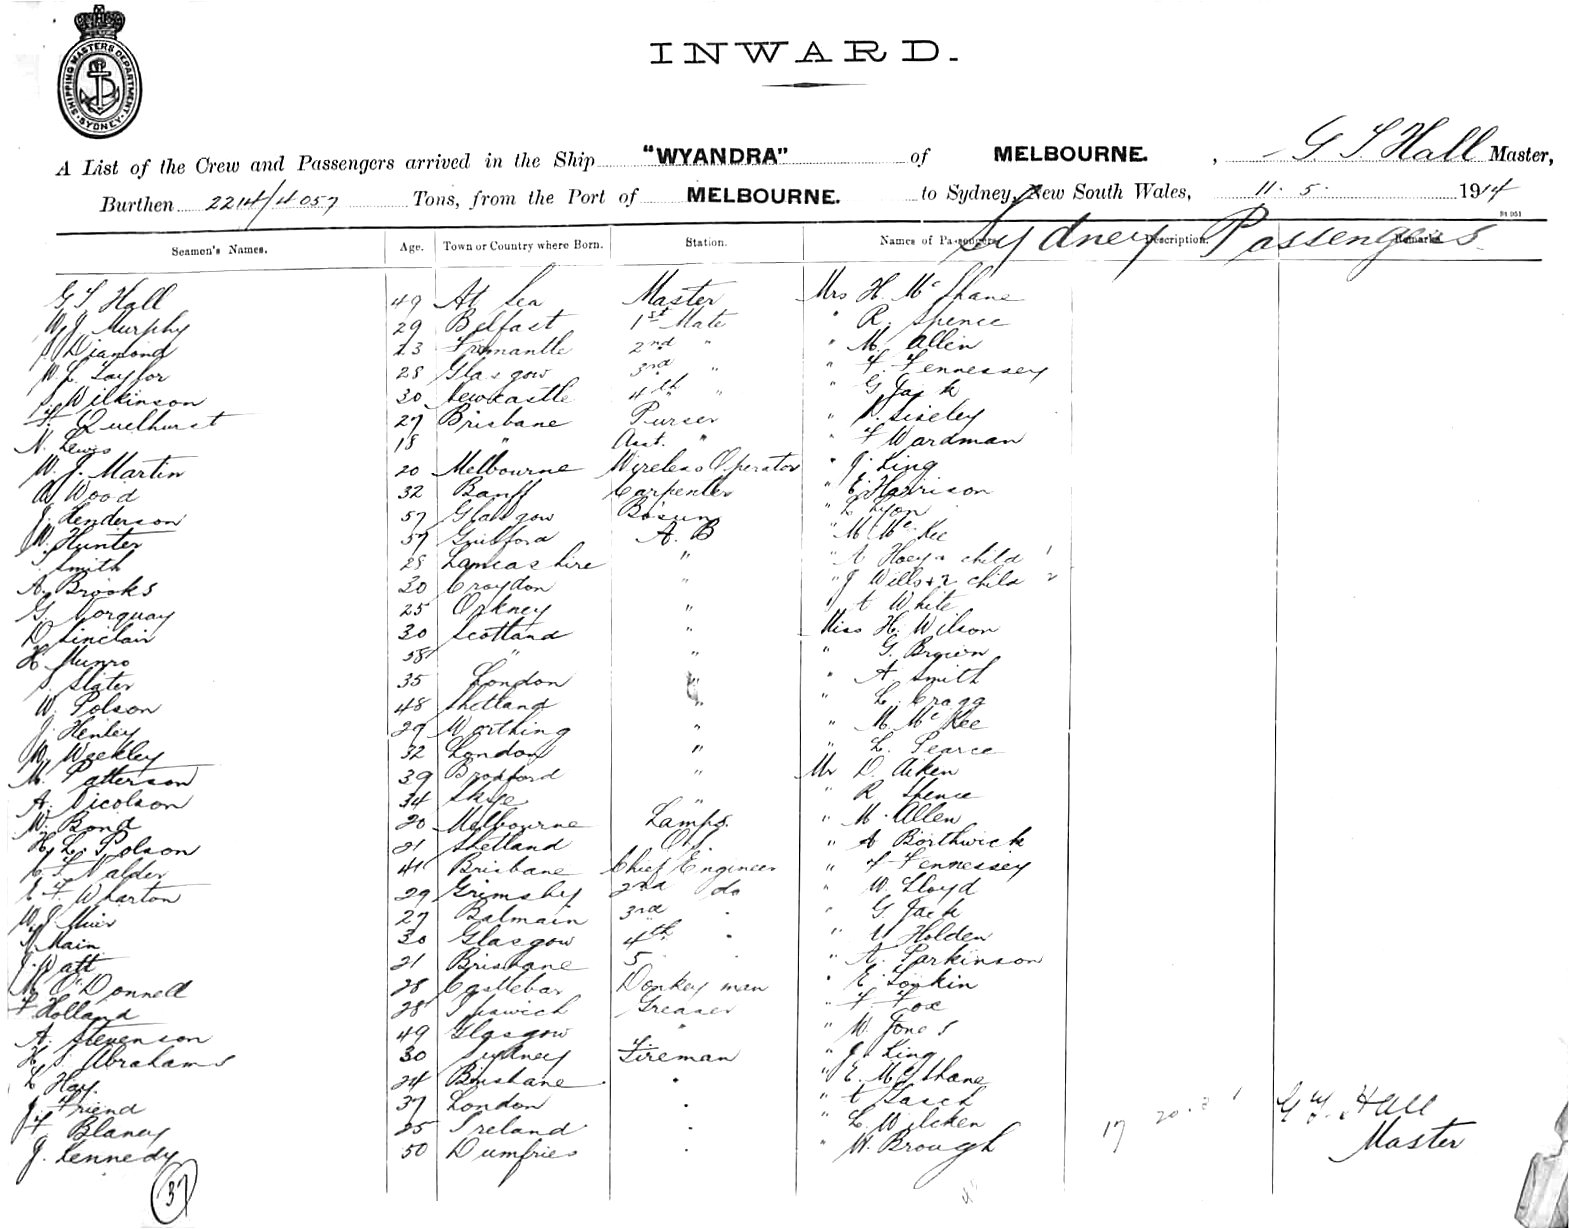 SHIPPING MASTERS DEPARTMENT · SYDNEY ·
INWARD.
A List of the Crew and Passengers arrived in the Ship "WYANDRA" of MELBOURNE. , G S Hall Master,
Burthen 2214/4057 Tons, from the Port of MELBOURNE. to Sydney, New South Wales, 11. 5. 1914
Sydney Passengers
Seamen's Names. Age. Town or Country where Born. Station. Names of Passengers Description. Remarks
G S Hall 49 At Sea Master Mrs H. McShane
W J Murphy 29 Belfast 1st Mate " R. Spence
Diamond 23 Fremantle 2nd " " M. Allen
W. L. Taylor 28 Glasgow 3rd " " F. Fennessey
Wilkinson 30 Newcastle 4th " " G Jack
F. Quelhurst 27 Brisbane Purser " Siseley
N. Lewis 18 " Asst. " " F Wardman
W. J. Martin 20 Melbourne Wireless Operator " J. King
A. Wood 32 Banff Carpenter " E. Harrison
J. Henderson 57 Glasgow Bosun " L. Lyon
W. Hunter 57 Guilford A. B " M. McKee
Smith 28 Lancashire " " A Hoey + child 1
A. Brooks 30 Croydon " " J Wills + 2 child 2
G. Norquay 25 Orkney " " White
D. Sinclair 30 Scotland " Miss H. Wilson
H. Munro 58 " " " G. Brown
S. Slater 35 London " " A. Smith
W. Polson 48 Shetland " " L. Cragg
J. Henley 29 Worthing " " M McKee
W. Weekley 32 London " " L. Pearce
M. Patterson 39 Bradford " Mr D. Aiken
A. Nicolson 34 Skye " " R Spence
W. Bond 20 Melbourne Lamps. " M. Allen
H. L. Polson 21 Shetland O.S. " A Borthwick
Nalder 41 Brisbane Chief Engineer " F Fennessey
E. F. Wharton 29 Grimsby 2nd do " W. Lloyd
W. J. Muir 27 Balmain 3rd " " G. Jack
Main 30 Glasgow 4th " " Holden
J. Watt 21 Brisbane 5 " A. Parkinson
M. O'Donnell 28 Castlebar Donkey man " E. Tonkin
F Holland 28 Ipswich Greaser " F. Fox
A. Stevenson 49 Glasgow " " W. Jones
H. S. Abrahams 30 Sydney Fireman " J. King
L Hay. 24 Brisbane " " E. McShane
J. Friend 37 London " "
F. Blaney 25 Ireland " " L. Wilcken
J. Kennedy 50 Dumfries " " W. Brough
17 20. 3 1
G S. Hall
Master
37